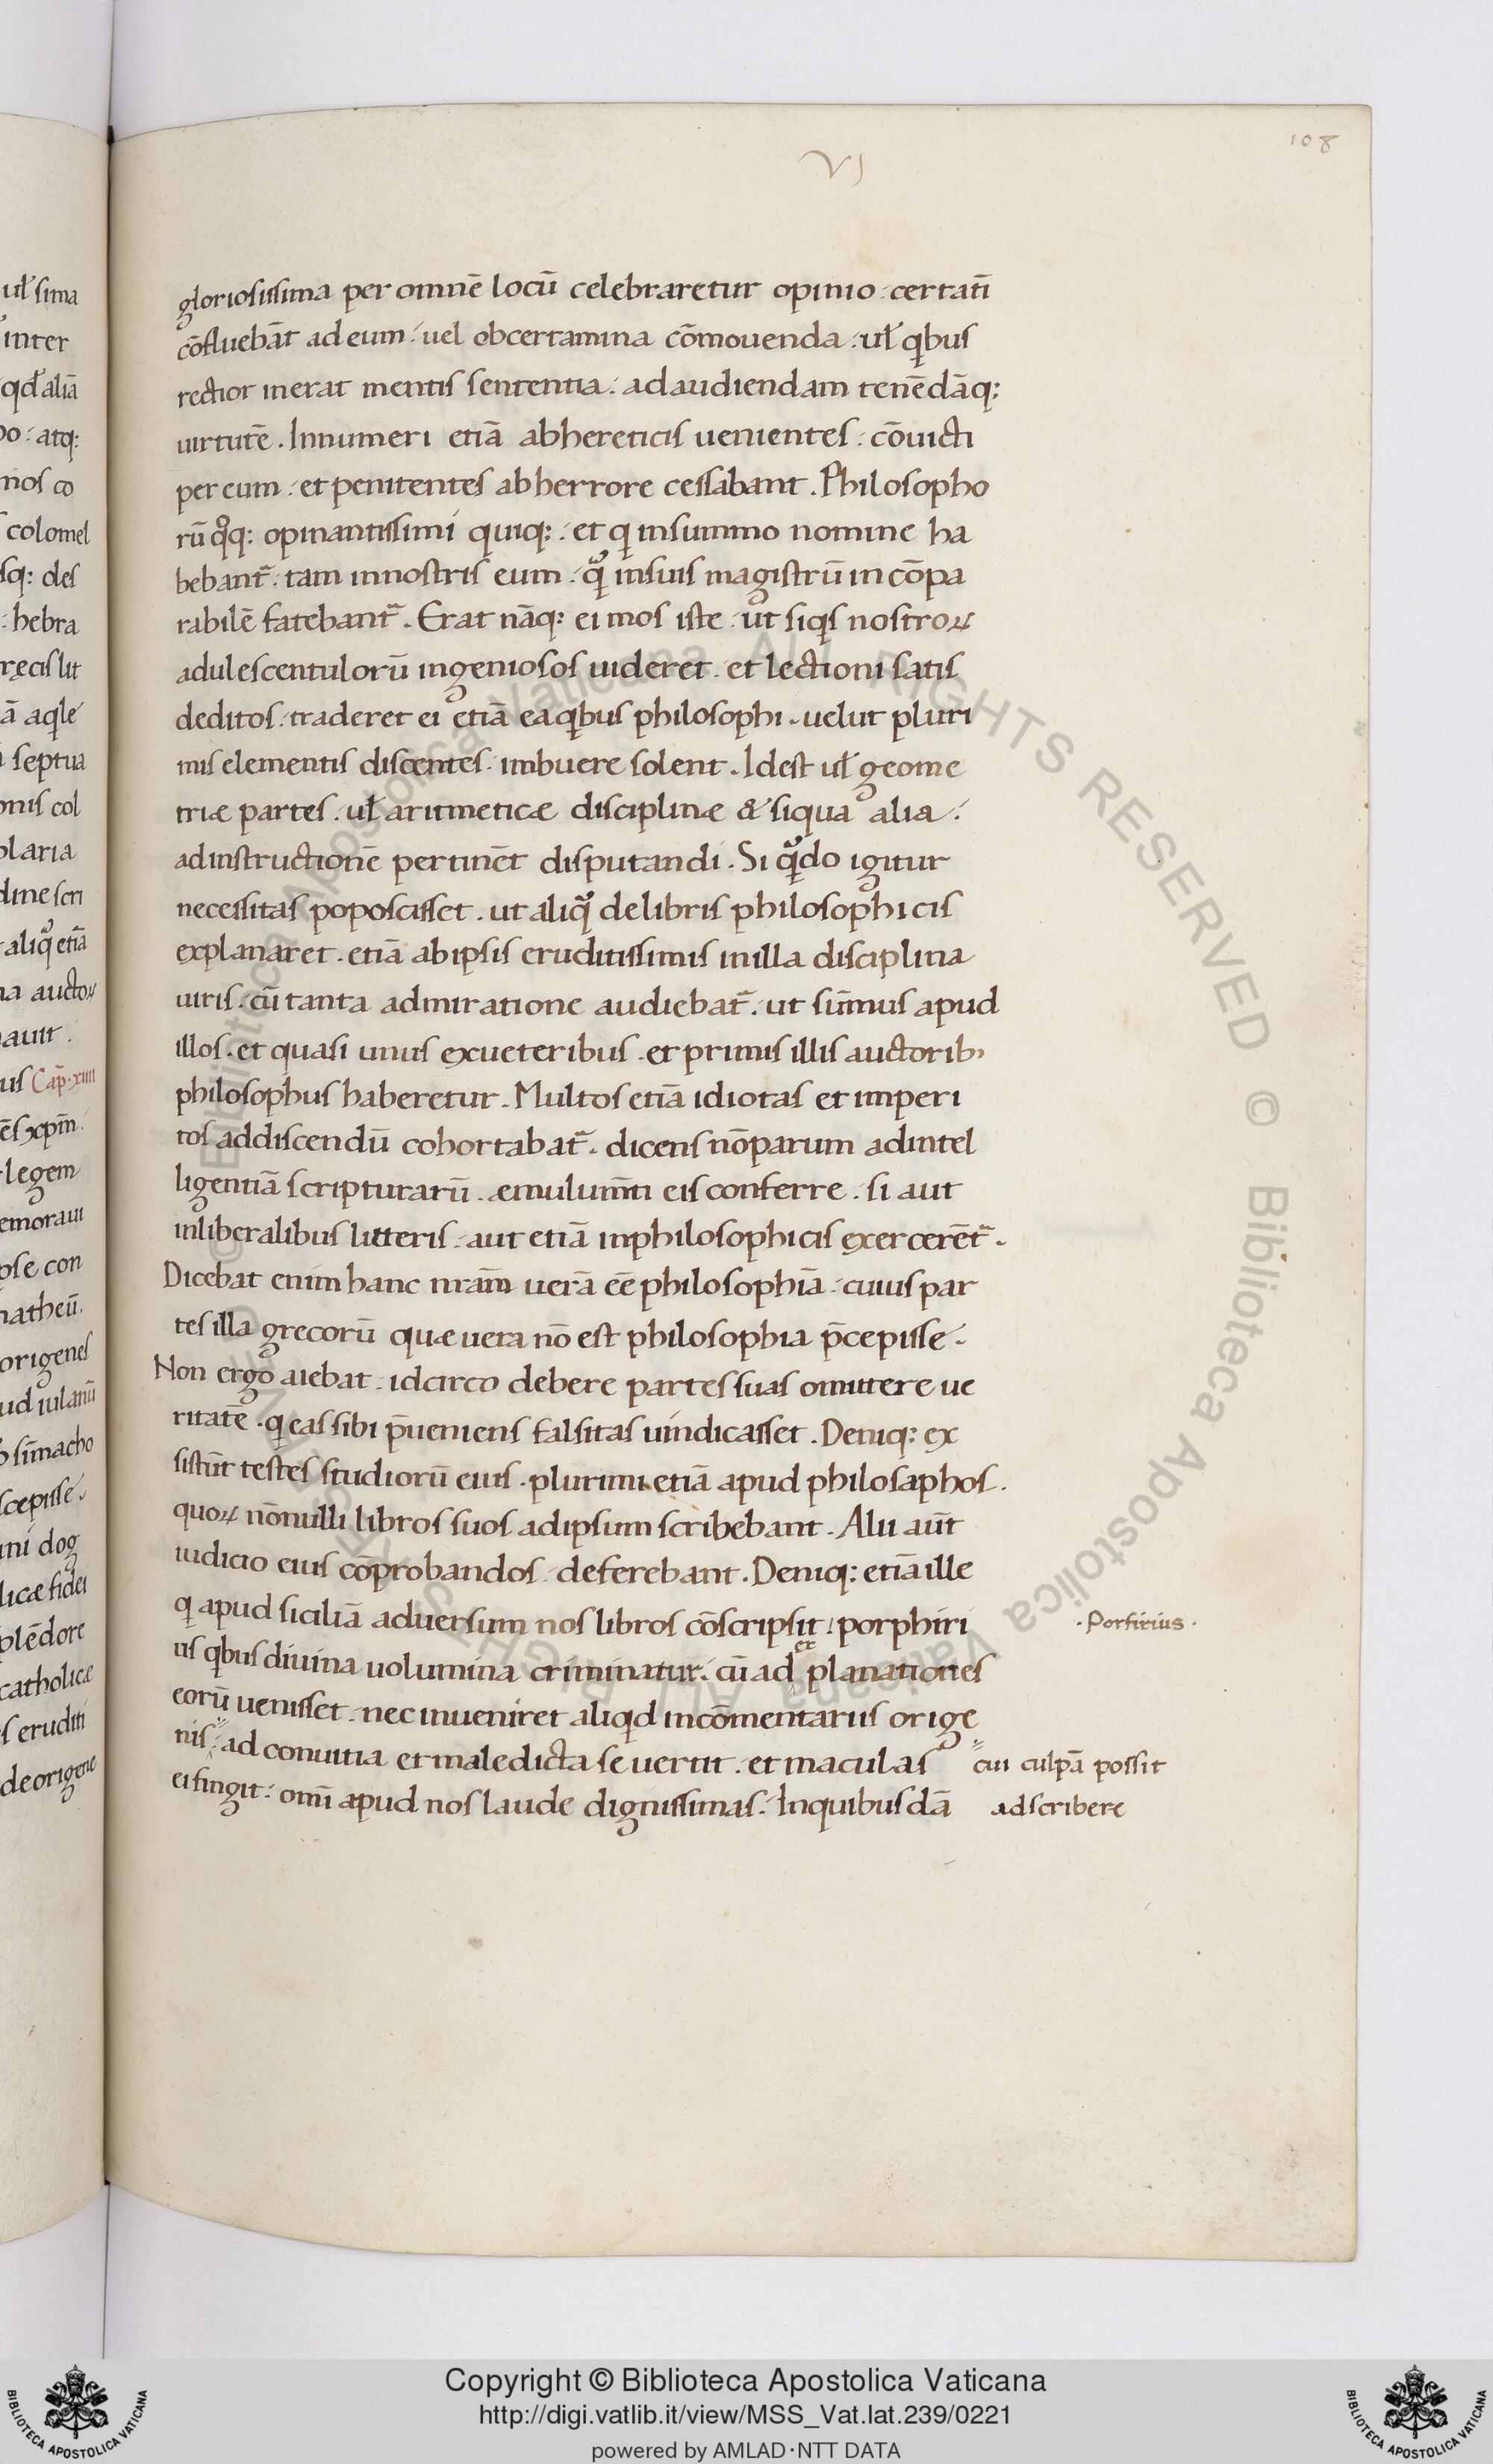 108
VI
gloriosissima per omnē locū celebraretur opinio. certatī
cōfluebāt ad eum. uel obcertamina cōmouenda. uł qibus
rectior inerat mentis sententia. adaudiendam tenēdāq:
uirtutē. Innumeri etiā abhereticis uenientes. cōuicti
per eum. et penitentes abherrore cessabant. Philosopho
rū qoq: opinantissimi quiq: et qi insummo nomine ha
bebant᷑. tam innostris eum. qᷓ insuis magistrū incōpa
rabilē fatebant᷑. Erat nāq: ei mos iste. ut siqis nostroꝝ
adulescentulorū ingeniosos uideret. et lectioni satis
deditos. traderet ei etiā ea qibus philosophi. uelut pluri
mis elementis discentes. imbuere solent. Idest uł geome
triæ partes. uł aritmeticæ disciplinæ & siqua alia.
adinstructionē pertinēt disputandi. Si qᷓdo igitur
necessitas poposcisset. ut aliqᷓ delibris philosophicis
explanaret. etiā abipsis eruditissimis inilla disciplina
uiris. cū tanta admiratione audiebat᷑. ut sūmus apud
illos. et quasi unus exueteribus. et primis illis auctorib;
philosophus haberetur. Multos etiā idiotas et imperi
tos addiscendū cohortabat᷑. dicens nōparum adintel
ligentiā scripturarū. æmulumīti eis conferre. si aut
inliberalibus litteris. aut etiā inphilosophicis exercerēt᷑.
Dicebat enim hanc nrām uerā eē philosophiā. cuius par
tes illa grecorū quæ uera nō est philosophia p̄cepisse.
Non ergo aiebat. idcirco debere partes suas omittere ue
ritatē. qi eas sibi p̄ueniens falsitas uindicasset. Deniq: ex
sistūt testes studiorū eius. plurimi etiā apud philosaphos.
quoꝝ nōnulli libros suos adipsum scribebant. Alii aūt
iudicio eius cōprobandos. deferebant. Deniq: etiā ille
qi apud siciliā aduersum nos libros cōscripsit. porphiri
·Porfirius·
us qibus diuina uolumina criminatur. cū ad explanationes
eorū uenisset. nec inueniret aliqid incōmentariis orige
nis. ad conuitia et maledicta se uertit. et maculas
cui culpā possit
ei fingit. omī apud nos laude dignissimas. Inquibusdā
adscribere
uł sima
inter
qd aliā
po. atq:
nos co
colomel
sq: des
hebra
recis lit
ā aqile
septua
onis col
olaria
dine scri
aliqᷓ etiā
na auctoꝝ
auit.
us Cap̄. xiiii
ēs xpm̄.
legem
emoraui
pse con
matheū.
origenes
ud iulanū
simacho
scepisse.
ini dog
licæ fidei
plēdore
catholicæ
s eruditi
de origene
© Biblioteca Apostolica Vaticana ALL RIGHTS RESERVED © Biblioteca Apostolica Vaticana ALL RIGHTS RESERVED
Copyright © Biblioteca Apostolica Vaticana
http://digi.vatlib.it/view/MSS_Vat.lat.239/0221
powered by AMLAD·NTT DATA
BIBLIOTECA APOSTOLICA VATICANA
BIBLIOTECA APOSTOLICA VATICANA